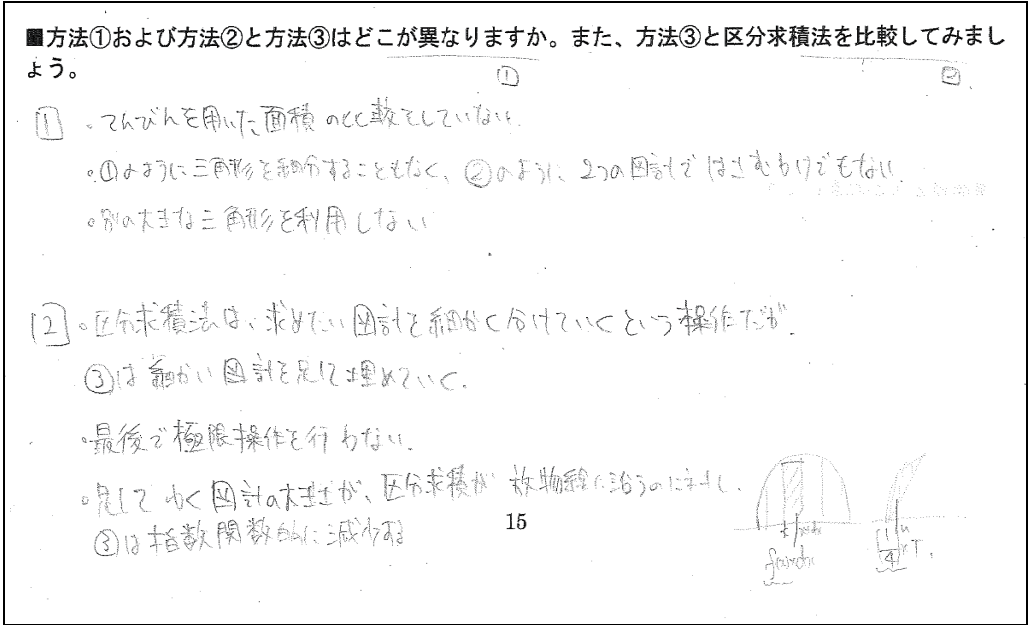 ■方法①および方法②と方法③はどこが異なりますか。また、方法③と区分求積法を比較してみまし
ょう。
①
②
1 ・てんびんを用いた面積の比較をしていない.
・①のように三角形を細分することもなく、②のように、2つの図計ではさむわけでもない.
・別の大きな三角形を利用しない
2 ・区分求積法は、求めたい図計を細かく分けていくという操作だが.
③は細かい図計を足して埋めていく.
・最後で極限操作を行わない.
・足してゆく図計の大きさが、区分求積が放物線に沿うのに対し、
③は指数関数的に減少する
f(x)dx
15